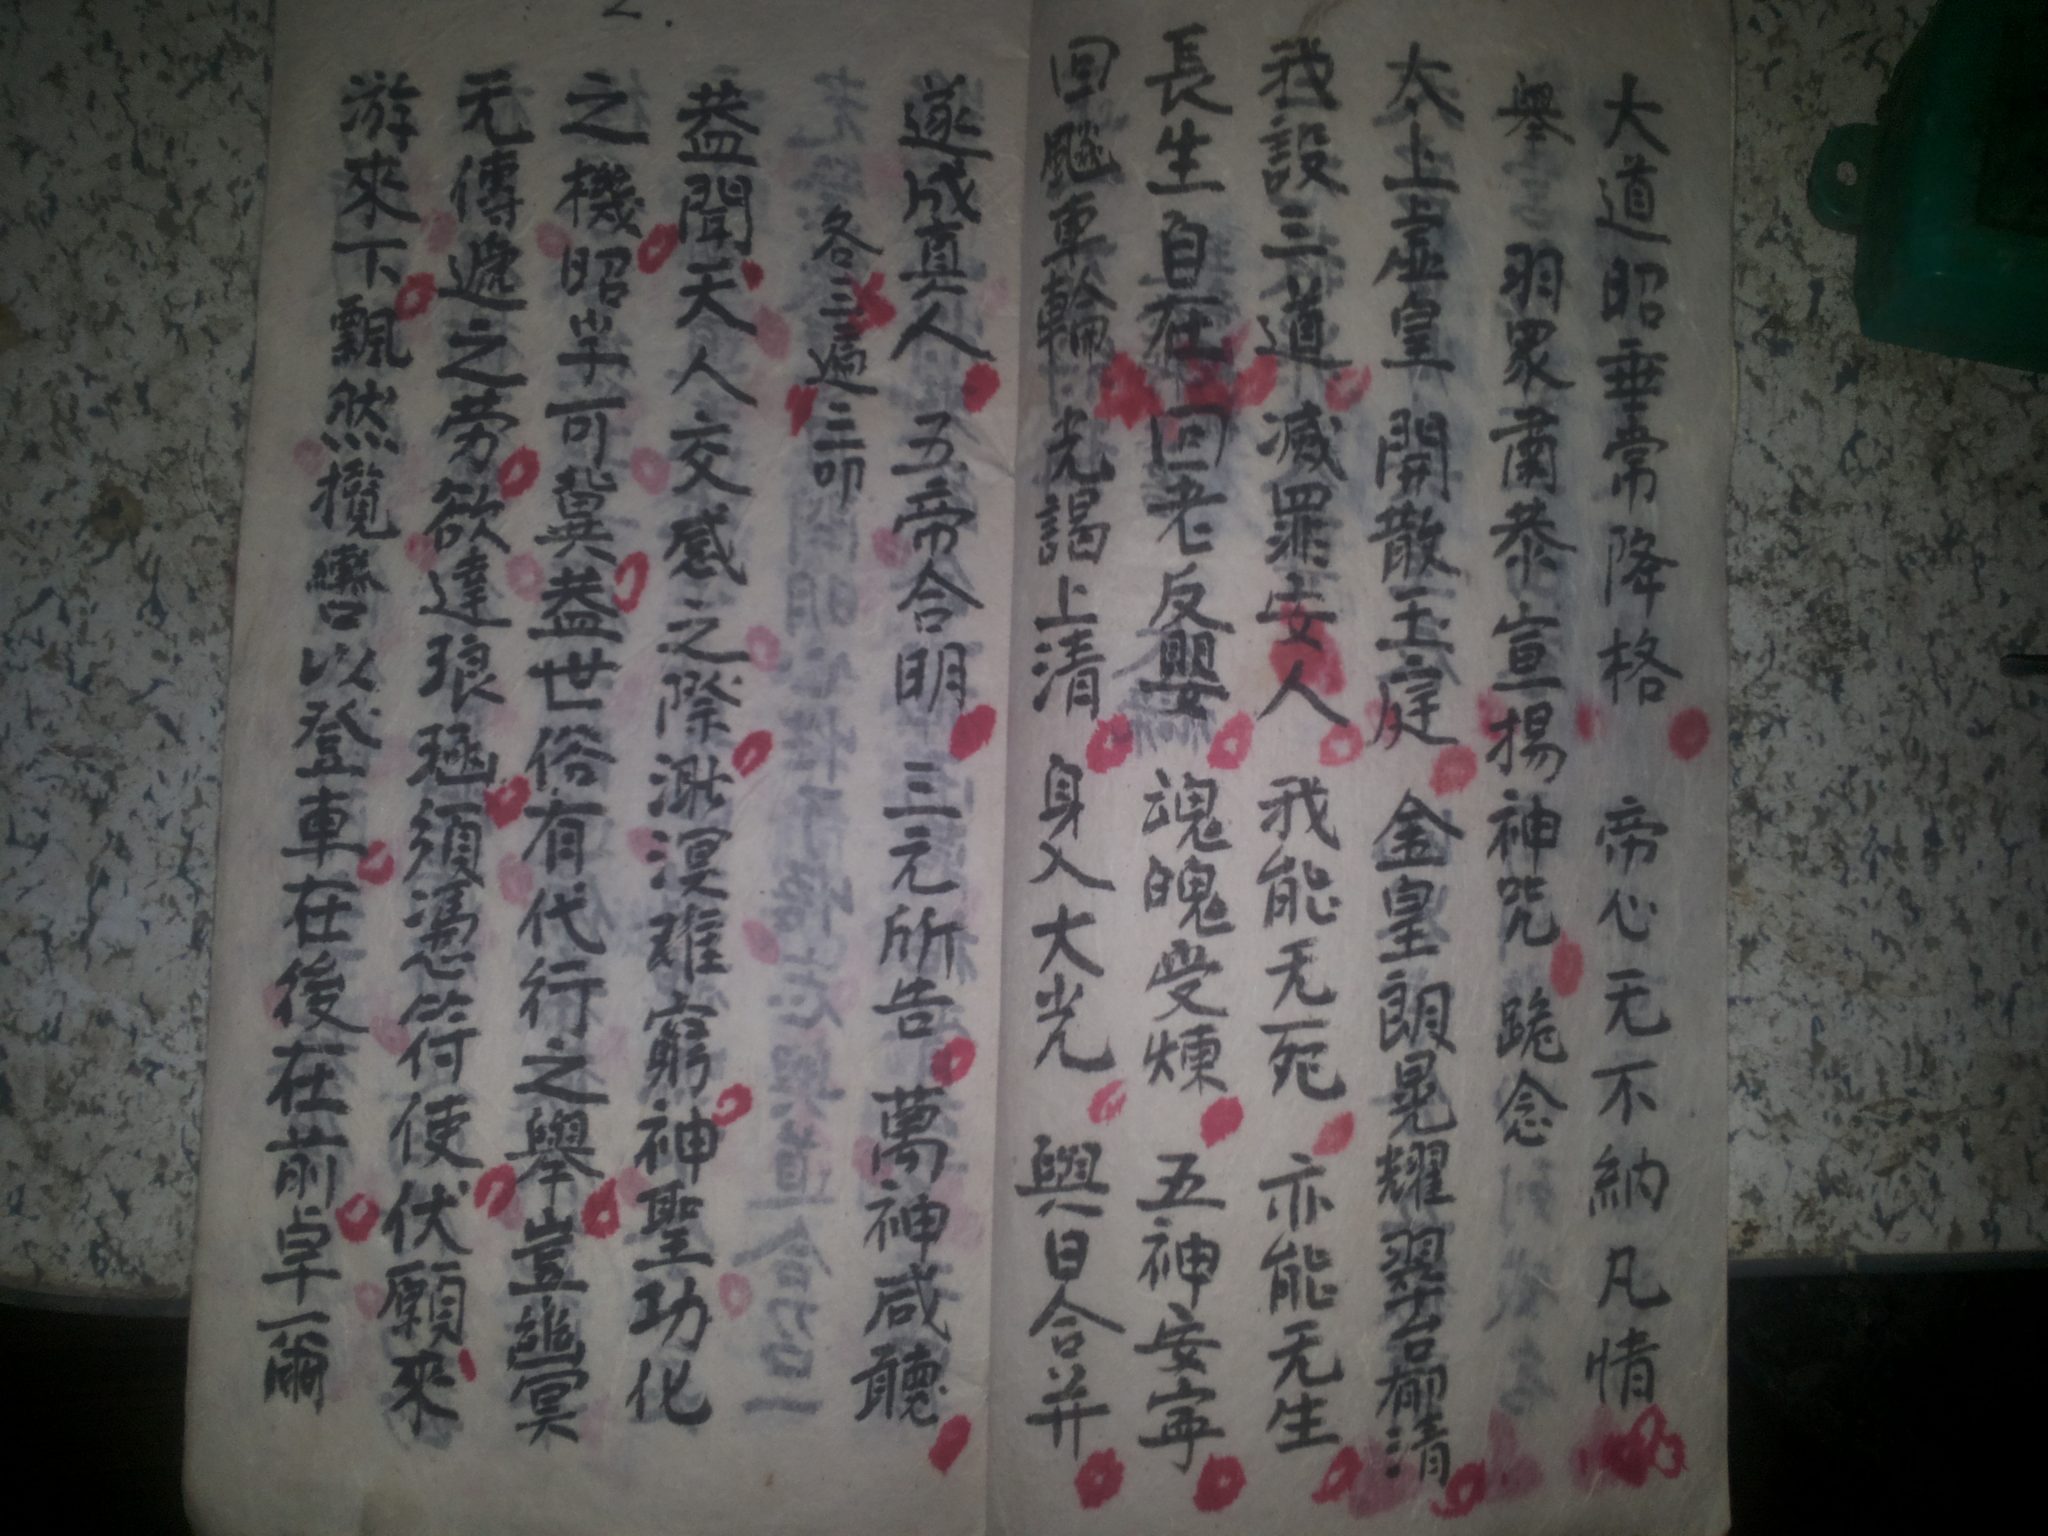 大道昭垂常降格 帝心无不納凡情
舉 羽眾肅恭宣揚神咒 跪念
太上虛皇 開散玉庭 金皇朗晃耀翠台郁清
我設三道 滅罪安人 我能无死 亦能无生
長生自在 回老反嬰 魂魄受煉 五神安寧
回飈車輪 光謁上清 身入大光 與日合并
遂成真人 五帝合明 三元所告 萬神咸聽
各三遍三叩
蓋聞天人交感之際漭溟难窮神聖功化
之機昭乎可冀蓋世俗有代行之舉豈幽冥
无傳遞之劳欲達琅函須憑符使伏願來
游來下飄然攬轡以登車在後在前卓爾